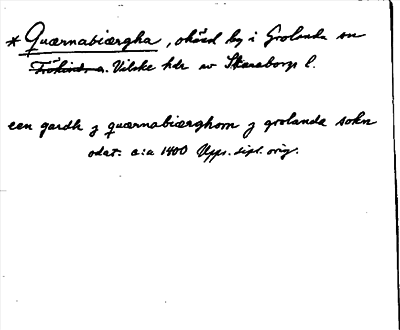 * Quærnabiærgha, okänd by i Grolanda sn
Frökinds o. Vilske hdr av Skaraborgs l.
een gardh j quærnabiærghom j grolanda sokn
odat: c:a 1400 Upps. dipl. orig.